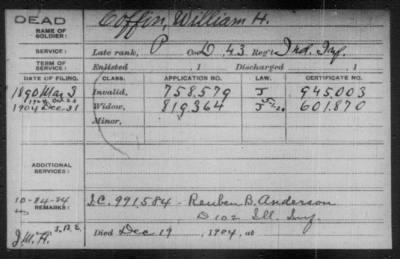 DEAD
NAME OF SOLDIER: Coffin, William H.
SERVICE: Late rank, P Co. D, 43 Reg't Ind. Inf.
TERM OF SERVICE: Enlisted , 1 Discharged , 1
DATE OF FILING. CLASS. APPLICATION NO. LAW. CERTIFICATE NO.
1890 Mar 3 Invalid, 758.579 J 945,003
1904 Dec. 31 Widow, 819,364 J 601.870
Minor,
ADDITIONAL SERVICES:
REMARKS: I.C. 991,584 - Reuben B. Anderson
D 102 Ill. Inf.
J.M.H.
Died Dec 19, 1904, at